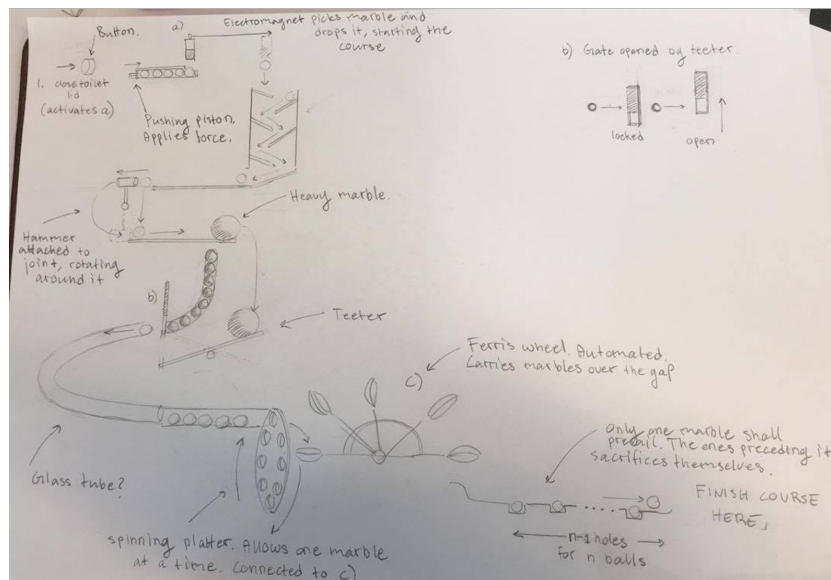 Button.
a)
Electromagnet picks marble and
drops it, starting the
course
1. close toilet
lid
(activates a)
Pushing piston,
Applies force.
b) Gate opened by teeter.
locked
open
Heavy marble.
Hammer
attached to
joint, rotating
around it
b)
Teeter
Ferris wheel. Automated.
Carries marbles over the gap
c)
Only one marble shall
prevail. The ones preceding it
sacrifices themselves.
Glass tube?
FINISH COURSE
HERE,
n-1 holes
for n balls
spinning platter. Allows one marble
at a time. Connected to c)